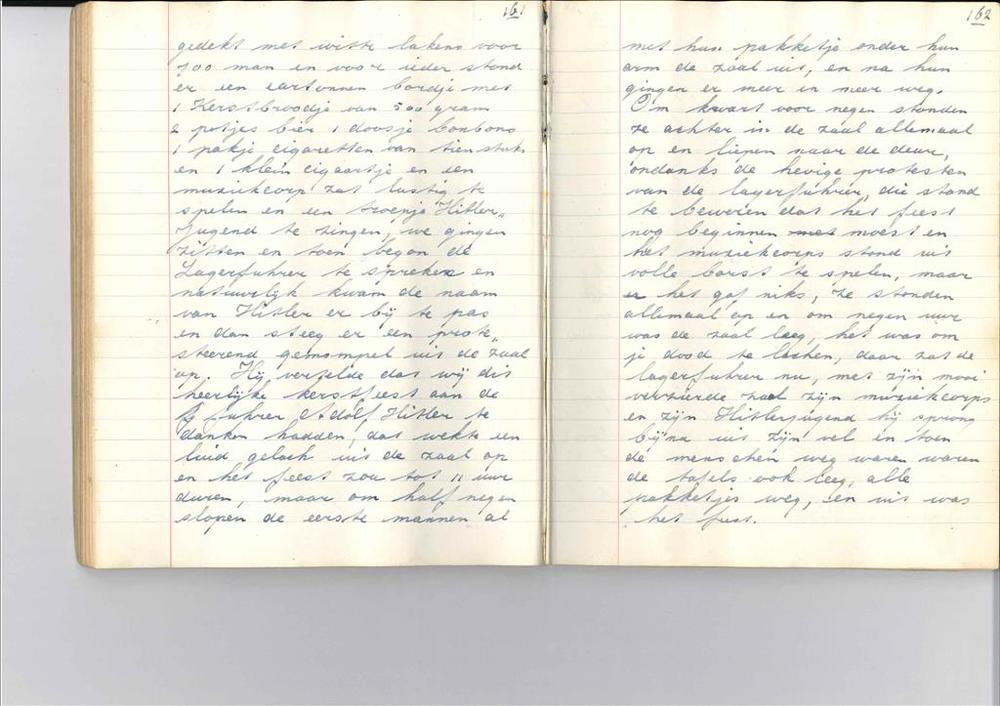 161
gedekt met witte lakens voor
700 man en voor ieder stond
er een cartonnen bordje met
1 Kerstbroodje van 500 gram
2 potjes bier 1 doosje bonbons
1 pakje cigaretten van tien stuks
en 1 klein cigaartje en een
muziekcorp zat lustig te
spelen en een troepje Hitler„
Jugend te zingen, we gingen
zitten en toen begon de
Lagerfuhrer te spreken en
natuurlijk kwam de naam
van Hitler er bij te pas
en dan steeg er een prote„
steerend gemompel uit de zaal
op. Hij vertelde dat wij dit
heerlijke kerstfeest aan de
fuhrer Adolf Hitler te
danken hadden, dat wekte een
luid gelach uit de zaal op
en het feest zou tot 11 uur
duren, maar om half negen
slopen de eerste mannen al
162
met hun pakketje onder hun
arm de zaal uit, en na hun
gingen er meer en meer weg.
Om kwart voor negen stonden
ze achter in de zaal allemaal
op en liepen naar de deur,
ondanks de hevige protesten
van de lagerfuhrer, die stond
te beweren dat het feest
nog beginnen moest en
het muziekcorps stond uit
volle borst te spelen, maar
het gaf niks, ze stonden
allemaal op en om negen uur
was de zaal leeg, het was om
je dood te lachen, daar zat de
lagerfuhrer nu, met zijn mooi
versierde zaal zijn muziekcorps
en zijn Hitlerjugend hij sprong
bijna uit zijn vel en toen
de menschen weg waren waren
de tafels ook leeg, alle
pakketjes weg, en uit was
het feest.